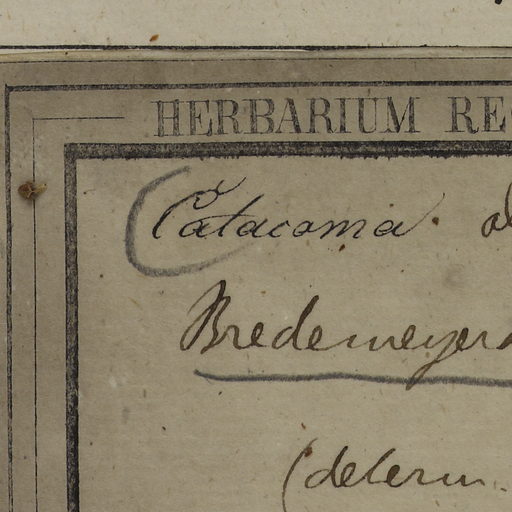 HERBARIUM RE
Catacoma.
Bredemeyera
(determ.